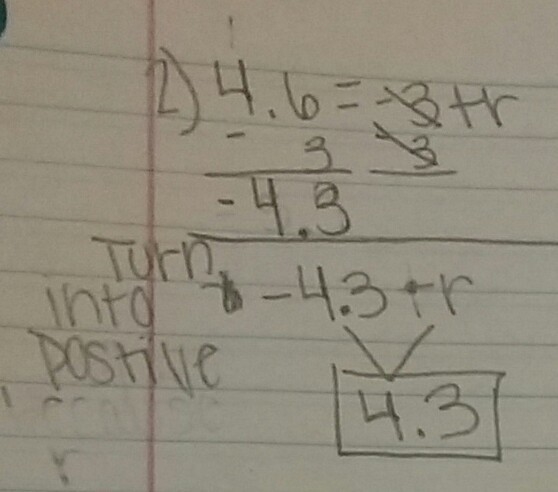 2) 4.6 = -3 + r
- 3 -3
-4.3
Turn
into -4.3 + r
postive
4.3
r